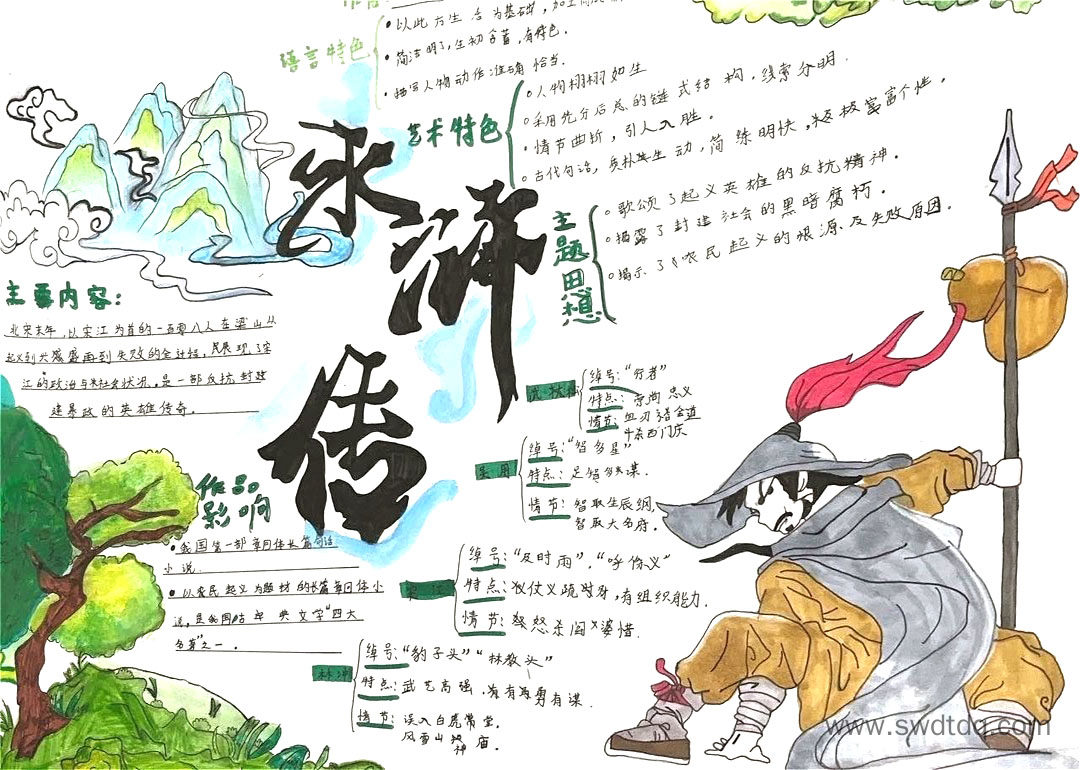 语言特色
• 以此方生 为基础,加工
• 简洁明了,生初含蓄,有特色.
• 描写人物动作准确 恰当.
艺术特色
• 人物栩栩如生
• 采用先分后总的链式结构,线索分明.
• 情节曲折,引人入胜.
• 古代句话, 生动,简练明快, 富富个性.
主题思想
• 歌颂了起义英雄的反抗精神.
• 揭露了封建社会的黑暗腐朽.
• 揭示了农民起义的根源及失败原因.
水浒传
主要内容:
北宋末年,以宋江为首的一百零八人在梁山从
起义到兴盛盛再到失败的全过程, 展现了宋
江的政治与 社会状况,是一部反抗封政
建暴政的英雄传奇.
绰号:“行者”
特点: 崇尚忠义
情节: 血刃潘金莲
斗杀西门庆
吴用
绰号:“智多星”
特点: 足智多谋.
情节: 智取生辰纲,
智取大名府.
作品
影响
• 我国第一部章回体长篇
小说.
• 以农民起义为题材的长篇章回体小
说,是我国古典文学“四大
名著”之一.
宋江
绰号:“及时雨”,“呼保义”
特点: 仗义疏财 ,有组织能力.
情节: 怒杀阎婆惜.
林冲
绰号:“豹子头”“林教头”
特点: 武艺高强, 有勇有谋.
情节: 误入白虎 堂.
风雪山 神庙.
www.swdtdq.com